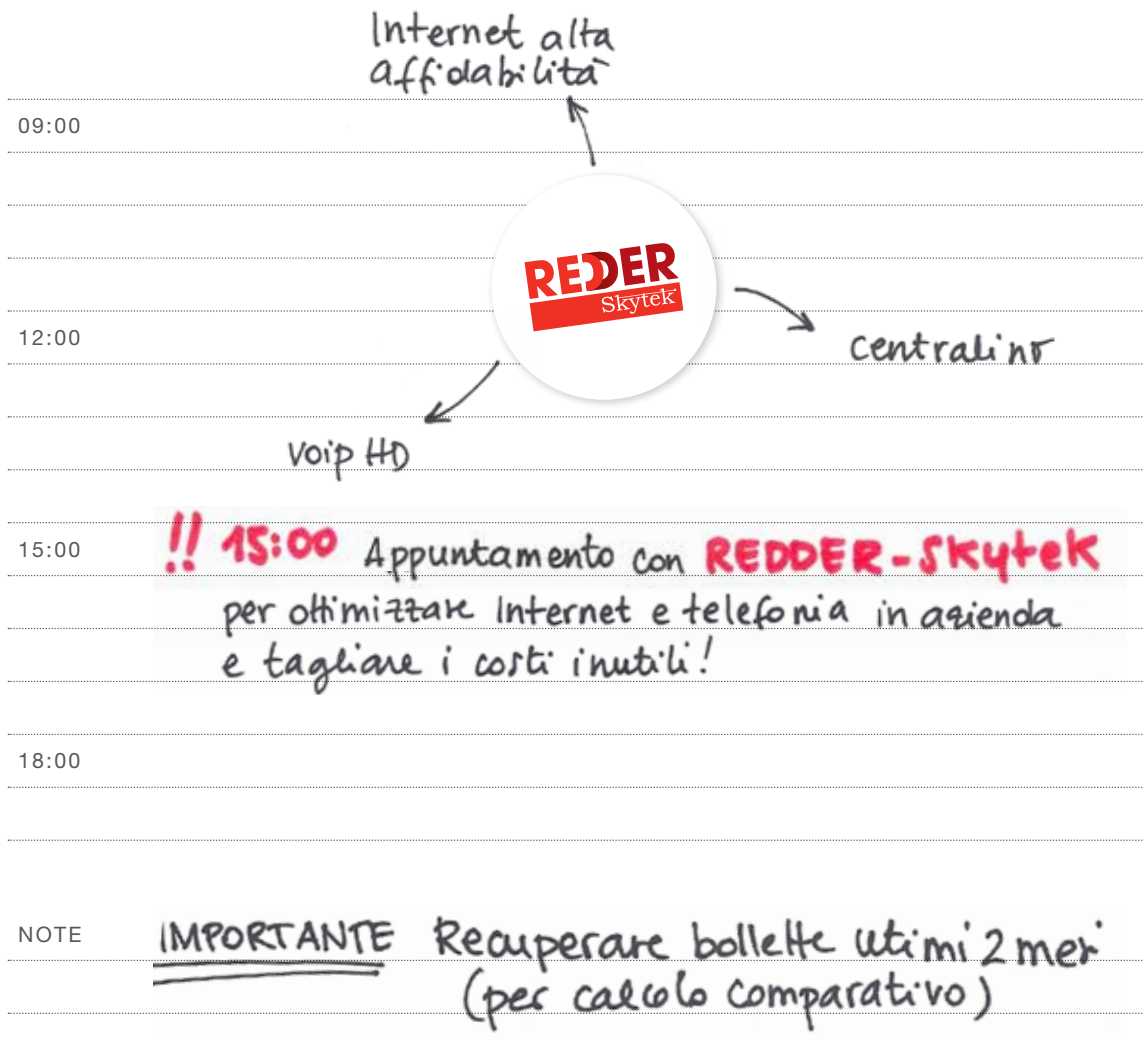 Internet alta
affidabilità
09:00
REDDER
Skytek
12:00
centralino
Voip HD
15:00 !! 15:00 Appuntamento con REDDER-SKytek
per ottimizzare Internet e telefonia in azienda
e tagliare i costi inutili!
18:00
NOTE IMPORTANTE Recuperare bollette utimi 2 mesi
(per calcolo comparativo)